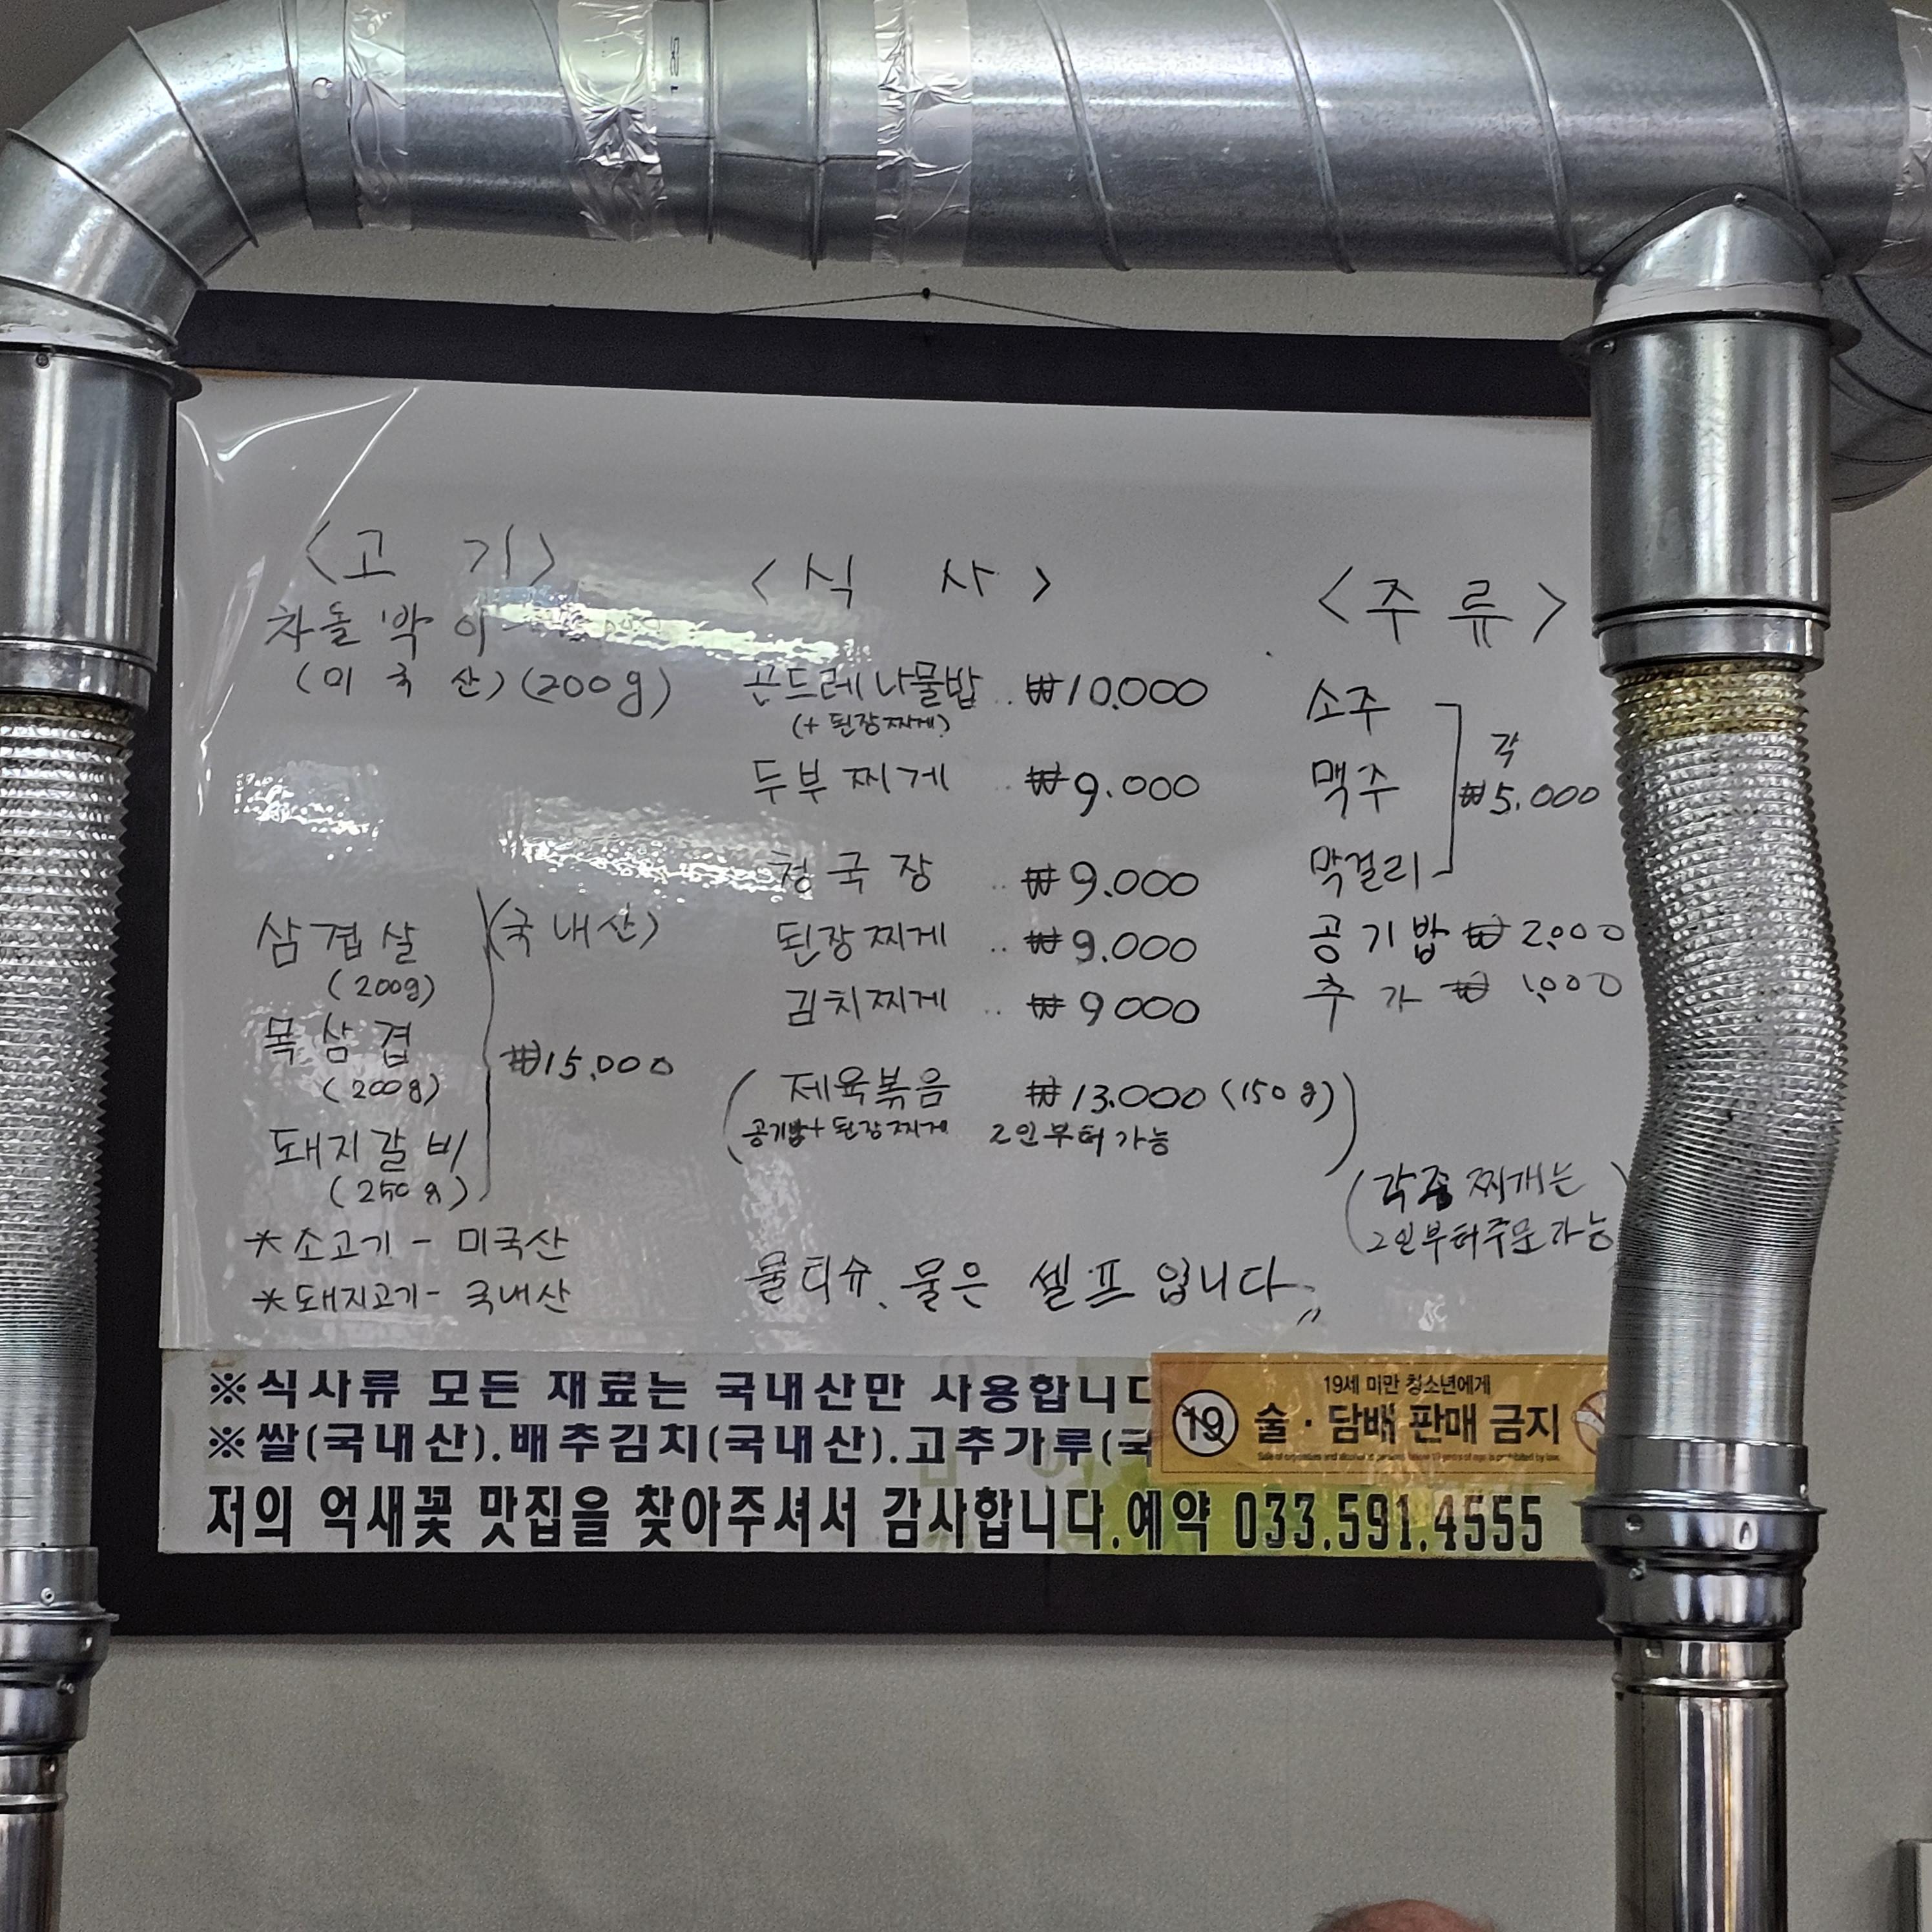 <고 기>
차돌박이
(미국산)(200g)
삼겹살 (국내산)
(200g)
목삼겹
(200g)
₩15,000
돼지갈비
(250g)
*소고기 - 미국산
*돼지고기 - 국내산
<식 사>
곤드레나물밥 .. ₩10.000
(+ 된장찌게)
두부찌게 .. ₩9.000
청국장 .. ₩9.000
된장찌게 .. ₩9.000
김치찌게 .. ₩9000
(제육볶음 ₩13.000 (150g)
공기밥+된장찌게 2인부터 가능)
물티슈, 물은 셀프입니다,,
<주류>
소주
맥주
막걸리
각
₩5.000
공기밥 ₩2,000
추가 ₩1,000
(각종 찌개는
2인부터주문가능
※식사류 모든 재료는 국내산만 사용합니다
※쌀(국내산).배추김치(국내산).고추가루(국
19세 미만 청소년에게
19 술·담배 판매 금지
저의 억새꽃 맛집을 찾아주셔서 감사합니다.예약 033.591.4555